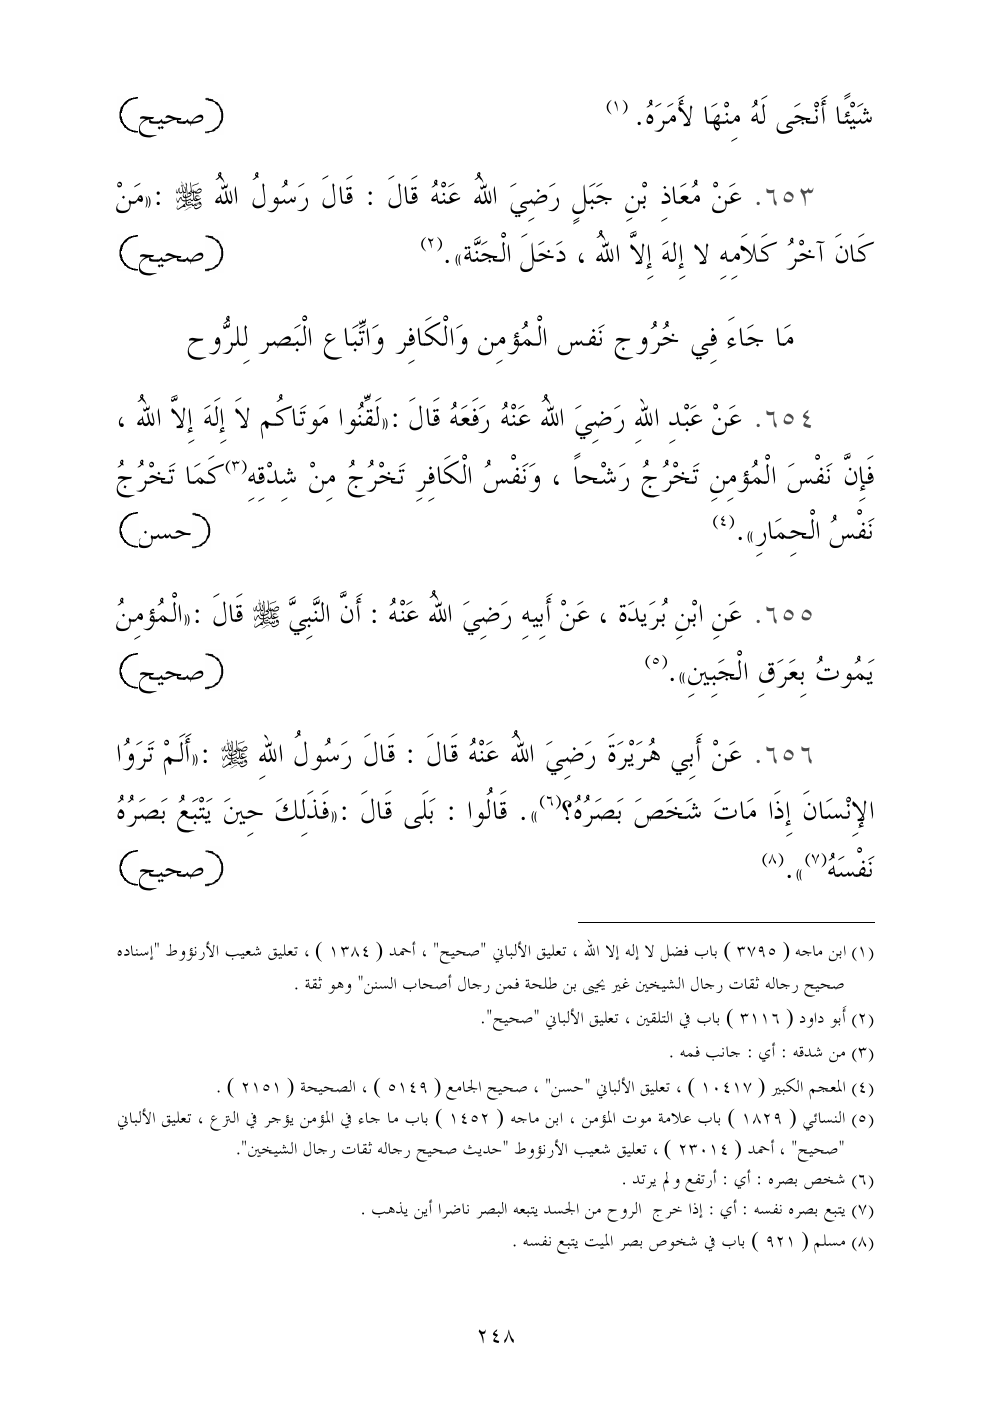 شَيْئًا أَنْجَى لَهُ مِنْهَا لأَمَرَهُ. (١) (صحيح)
٦٥٣. عَنْ مُعَاذِ بْنِ جَبَلٍ رَضِيَ اللهُ عَنْهُ قَالَ : قَالَ رَسُولُ اللهُ ﷺ :«مَنْ
كَانَ آخْرُ كَلاَمِهِ لا إِلهَ إِلاَّ اللهُ ، دَخَلَ الْجَنَّة». (٢) (صحيح)
مَا جَاءَ فِي خُرُوج نَفس الْمُؤمِن وَالْكَافِر وَاتِّبَاع الْبَصر لِلرُّوح
٦٥٤. عَنْ عَبْدِ اللهِ رَضِيَ اللهُ عَنْهُ رَفَعَهُ قَالَ :«لَقِّنُوا مَوتَاكُم لاَ إِلَهَ إِلاَّ اللهُ ،
فَإِنَّ نَفْسَ الْمُؤمِنِ تَخْرُجُ رَشْحاً ، وَنَفْسُ الْكَافِرِ تَخْرُجُ مِنْ شِدْقِهِ(٣)كَمَا تَخْرُجُ
نَفْسُ الْحِمَارِ». (٤) (حسن)
٦٥٥. عَنِ ابْنِ بُرَيدَة ، عَنْ أَبِيهِ رَضِيَ اللهُ عَنْهُ : أَنَّ النَّبِيَّ ﷺ قَالَ :«الْمُؤمِنُ
يَمُوتُ بِعَرَقِ الْجَبِينِ». (٥) (صحيح)
٦٥٦. عَنْ أَبِي هُرَيْرَةَ رَضِيَ اللهُ عَنْهُ قَالَ : قَالَ رَسُولُ اللهِ ﷺ :«أَلَمْ تَرَوُا
الإِنْسَانَ إِذَا مَاتَ شَخَصَ بَصَرُهُ؟(٦)». قَالُوا : بَلَى قَالَ :«فَذَلِكَ حِينَ يَتْبَعُ بَصَرُهُ
نَفْسَهُ(٧)». (٨) (صحيح)
(١) ابن ماجه ( ٣٧٩٥ ) باب فضل لا إله إلا الله ، تعليق الألباني "صحيح" ، أحمد ( ١٣٨٤ ) ، تعليق شعيب الأرنؤوط "إسناده
صحيح رجاله ثقات رجال الشيخين غير يحيى بن طلحة فمن رجال أصحاب السنن" وهو ثقة .
(٢) أَبو داود ( ٣١١٦ ) باب في التلقين ، تعليق الألباني "صحيح".
(٣) من شدقه : أي : جانب فمه .
(٤) المعجم الكبير ( ١٠٤١٧ ) ، تعليق الألباني "حسن" ، صحيح الجامع ( ٥١٤٩ ) ، الصحيحة ( ٢١٥١ ) .
(٥) النسائي ( ١٨٢٩ ) باب علامة موت المؤمن ، ابن ماجه ( ١٤٥٢ ) باب ما جاء في المؤمن يؤجر في النزع ، تعليق الألباني
"صحيح" ، أحمد ( ٢٣٠١٤ ) ، تعليق شعيب الأرنؤوط "حديث صحيح رجاله ثقات رجال الشيخين".
(٦) شخص بصره : أي : أرتفع ولم يرتد .
(٧) يتبع بصره نفسه : أي : إذا خرج الروح من الجسد يتبعه البصر ناضرا أين يذهب .
(٨) مسلم ( ٩٢١ ) باب في شخوص بصر الميت يتبع نفسه .
٢٤٨